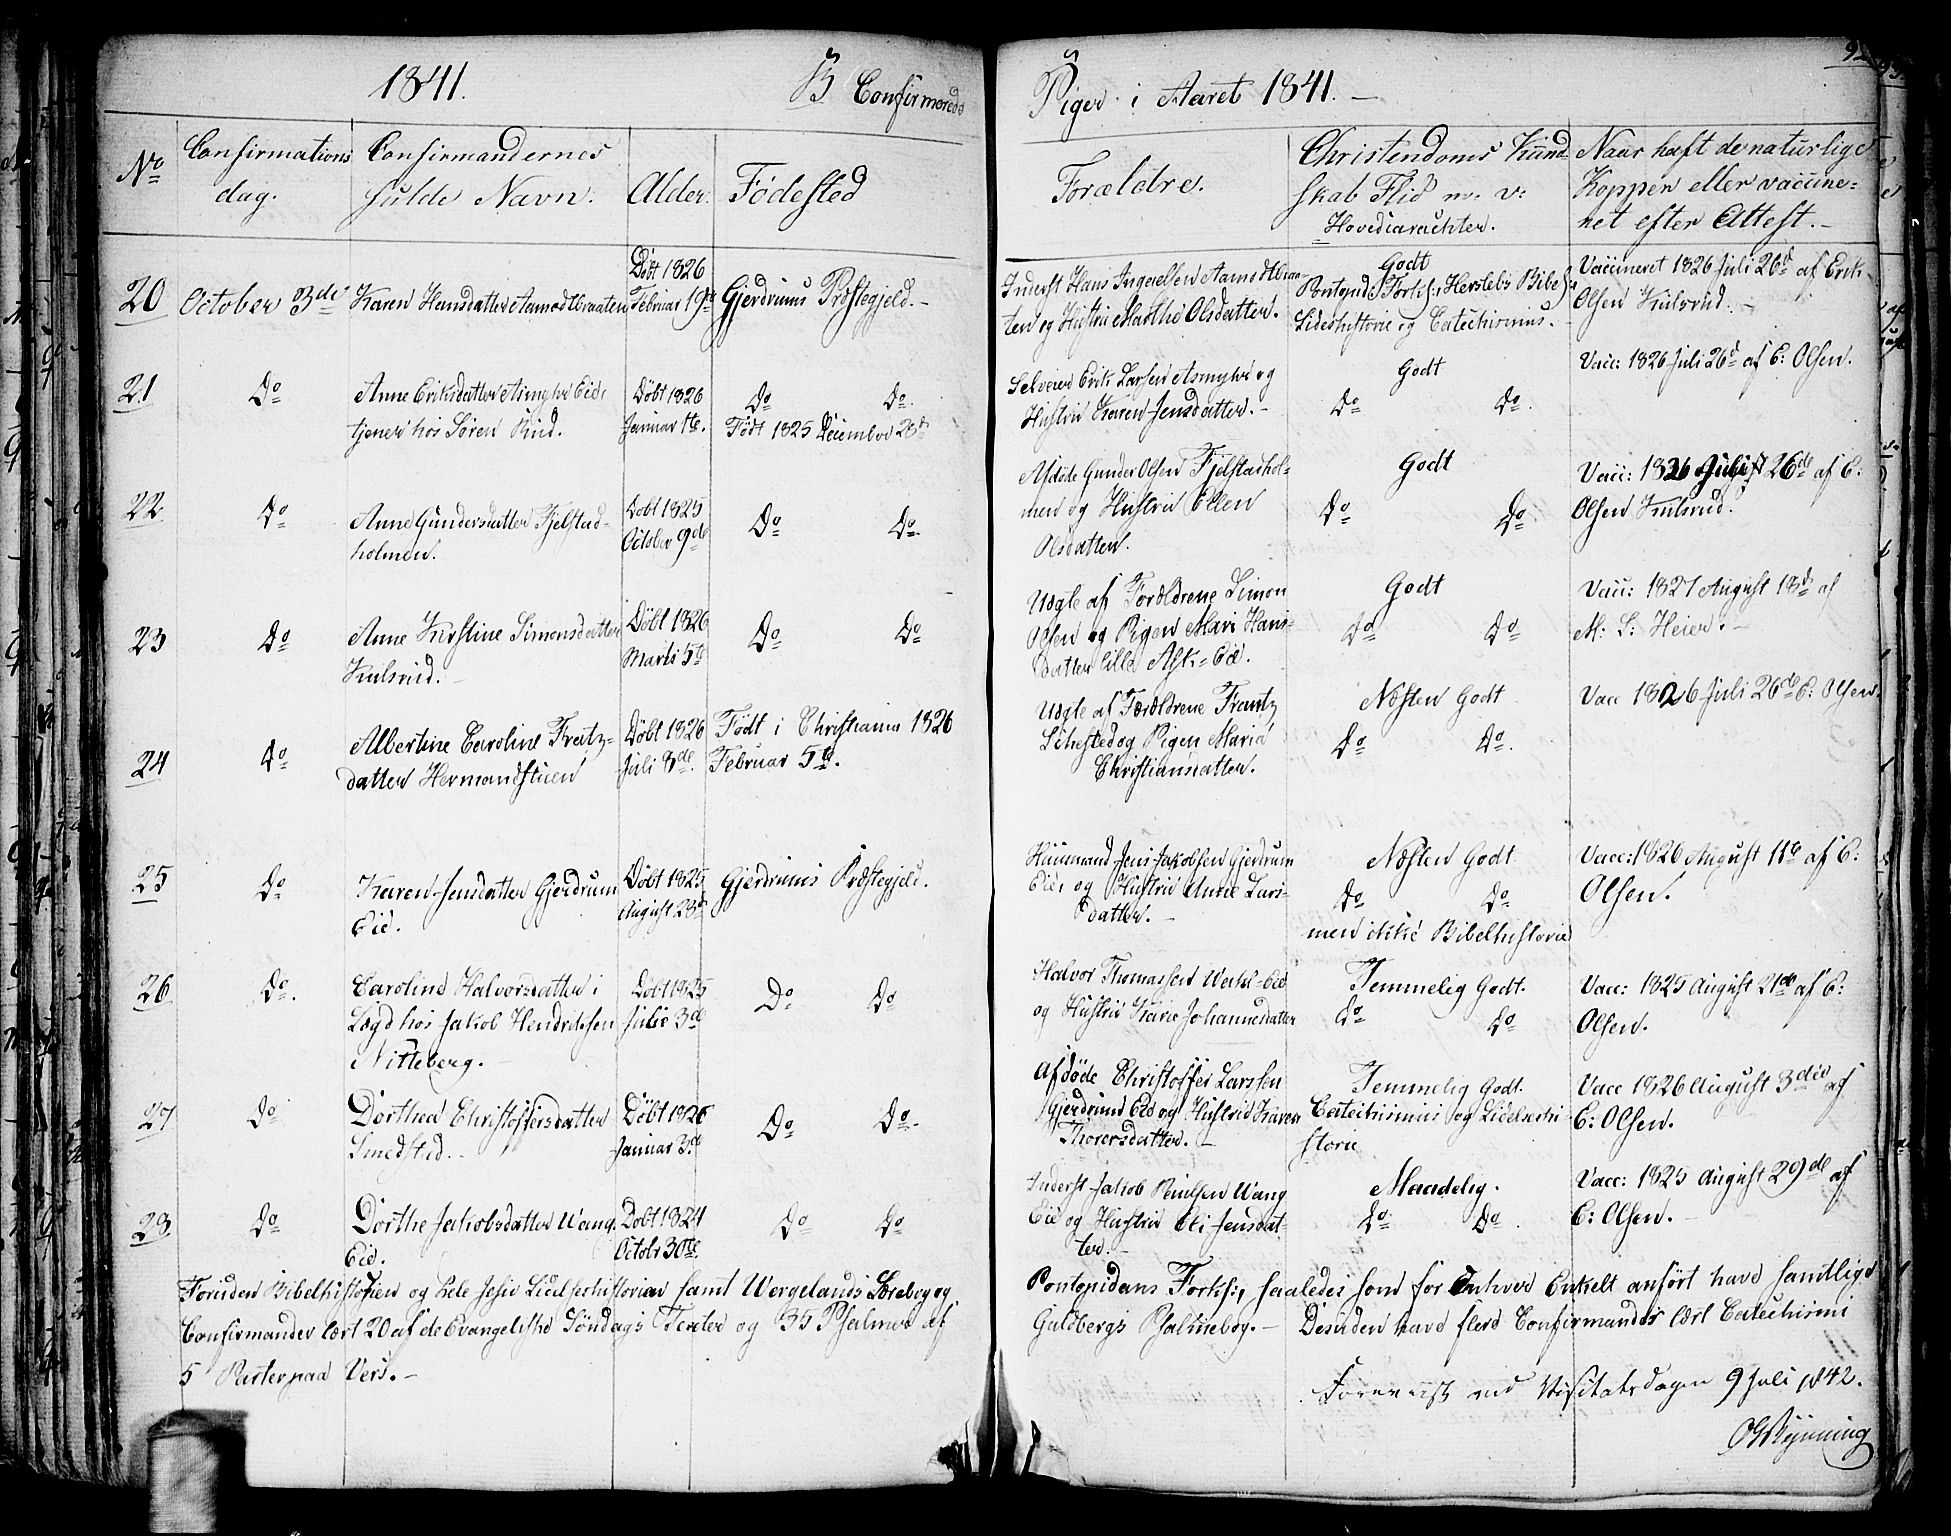 1841. B Confirmerede
Piger i Aaret 1841. —
92
No
Confirmations
dag.
Confirmandernes
fulde Navn.
Alder.
Fødested
Forældre.
Christendoms Kund
skab Flid m. v:
Hovedcarachter.
Naar haft de naturlige
Kopper eller vaccine=
ret efter Attest. —
20
October 3de
Karen Hansdatter Aamodtbraaten
Døbt 1826
Februar 19de
Gjerdrums Præstegjeld. —
Inderst Hans Ingvelsen Aamodtbraa=
ten og Hustru Marthe Olsdatter.
Godt
Pontopid: Fork:, Herslebs Bibelh:
Lideshistorie og Catechismus. —
Vaccineret 1826 Juli 26d af Erik
Olsen Kulsrud. —
21
Do
Anne Eriksdatter Asmyhr Eie,
tjener hos Søren Rud.
Døbt 1826
Januar 1te.
Do Do.
Født 1825 December 28d
Selveier Erik Larsen Asmyhr og
Hustru Karen Jensdatter. —
Godt
Do Do.
Vacc: 1826 Juli 26d af E: Olsen.
22
Do
Anne Gundersdatter Fjelstad=
holmen.
Døbt 1825
October 9de
Do Do.
Afdøde Gunder Olsen Fjelstadhol=
men og Hustru Ellen
Olsdatter.
Godt
Do Do
Vacc: 1826 Juli 26de af E:
Olsen Kulsrud.
23
Do
Anne Kirstine Simensdatter
Kulsrud. —
Døbt 1826
Marti 5te
Do Do
Uægte af Forældrene Simon
Olsen og Pigen Mari Hans=
datter lille Ask=Eie.
Godt
Do Do
Vacc: 1827 August 18d af
M: L: Heier. —
24
Do
Albertine Caroline Frantz=
datter Hermandstuen
Døbt 1826
Juli 8de.
Født i Christiania 1826
Februar 5te.
Uægte af Forældrene Frantz
Sehested og Pigen Maria
Christiansdatter.
Næsten Godt
Do Do.
Vacc 1826 Juli 26de E: Olsen.
25
Do
Karen Jensdatter Gjerdrum
Eie.
Døbt 1825
August 28d
Gjerdrums Præstegjeld.
Huusmand Jens Jakobsen Gjerdrum
Eie, og Hustru Anne Lars=
datter. —
Næsten Godt
Do Do
men ikke Bibelhistorie
Vacc: 1826 August 11te af E:
Olsen.
26
Do.
Caroline Halvorsdatter i
Lægd hos Jakob Hendriksen
Nitteberg. —
Døbt 1825
Julii 3de
Do Do
Halvor Thomassen Eie
og Hustru Karie Johannesdatter
Temmelig Godt.
Do Do
Vacc: 1825 August 21de af E:
Olsen.
27
Do
Dorthea Christoffersdatter
Smedstad. —
Døbt 1826
Januar 3de
Do Do.
Afdøde Christoffer Larssen
Gjerdrum Eie og Hustru Karen
Thorersdatter. —
Temmelig Godt.
Catechismus og Lidelseshi=
storie
Vacc 1826 August 3die af
E: Olsen.
28
Do
Dorthe Jakobsdatter Wang
Eie.
Døbt 1824
Octobr 30te.
Do Do
Inderst Jakob Poulsen Wang
Eie og Hustru Eli Jensdat=
ter. —
Maadelig.
Do Do.
Vacc: 1825 August 29de af
E: Olsen. —
Foruden Bibelhistorien og Hele Jesu Lidelseshistorien samt Wergelands Lærebog og
Pontopidans Fork:, saaledes som for Enhver Enkelt anført have samtlige
Confirmander lært 20 af de Evangeliske Søndags Texter og 35 Psalmer af
Guldbergs Psalmebog. — Desuden have flere Confirmander lært Catechismi
5 Parter paa Vers. —
Foreviist ved Visitatsdagen 9 Juli 1842.